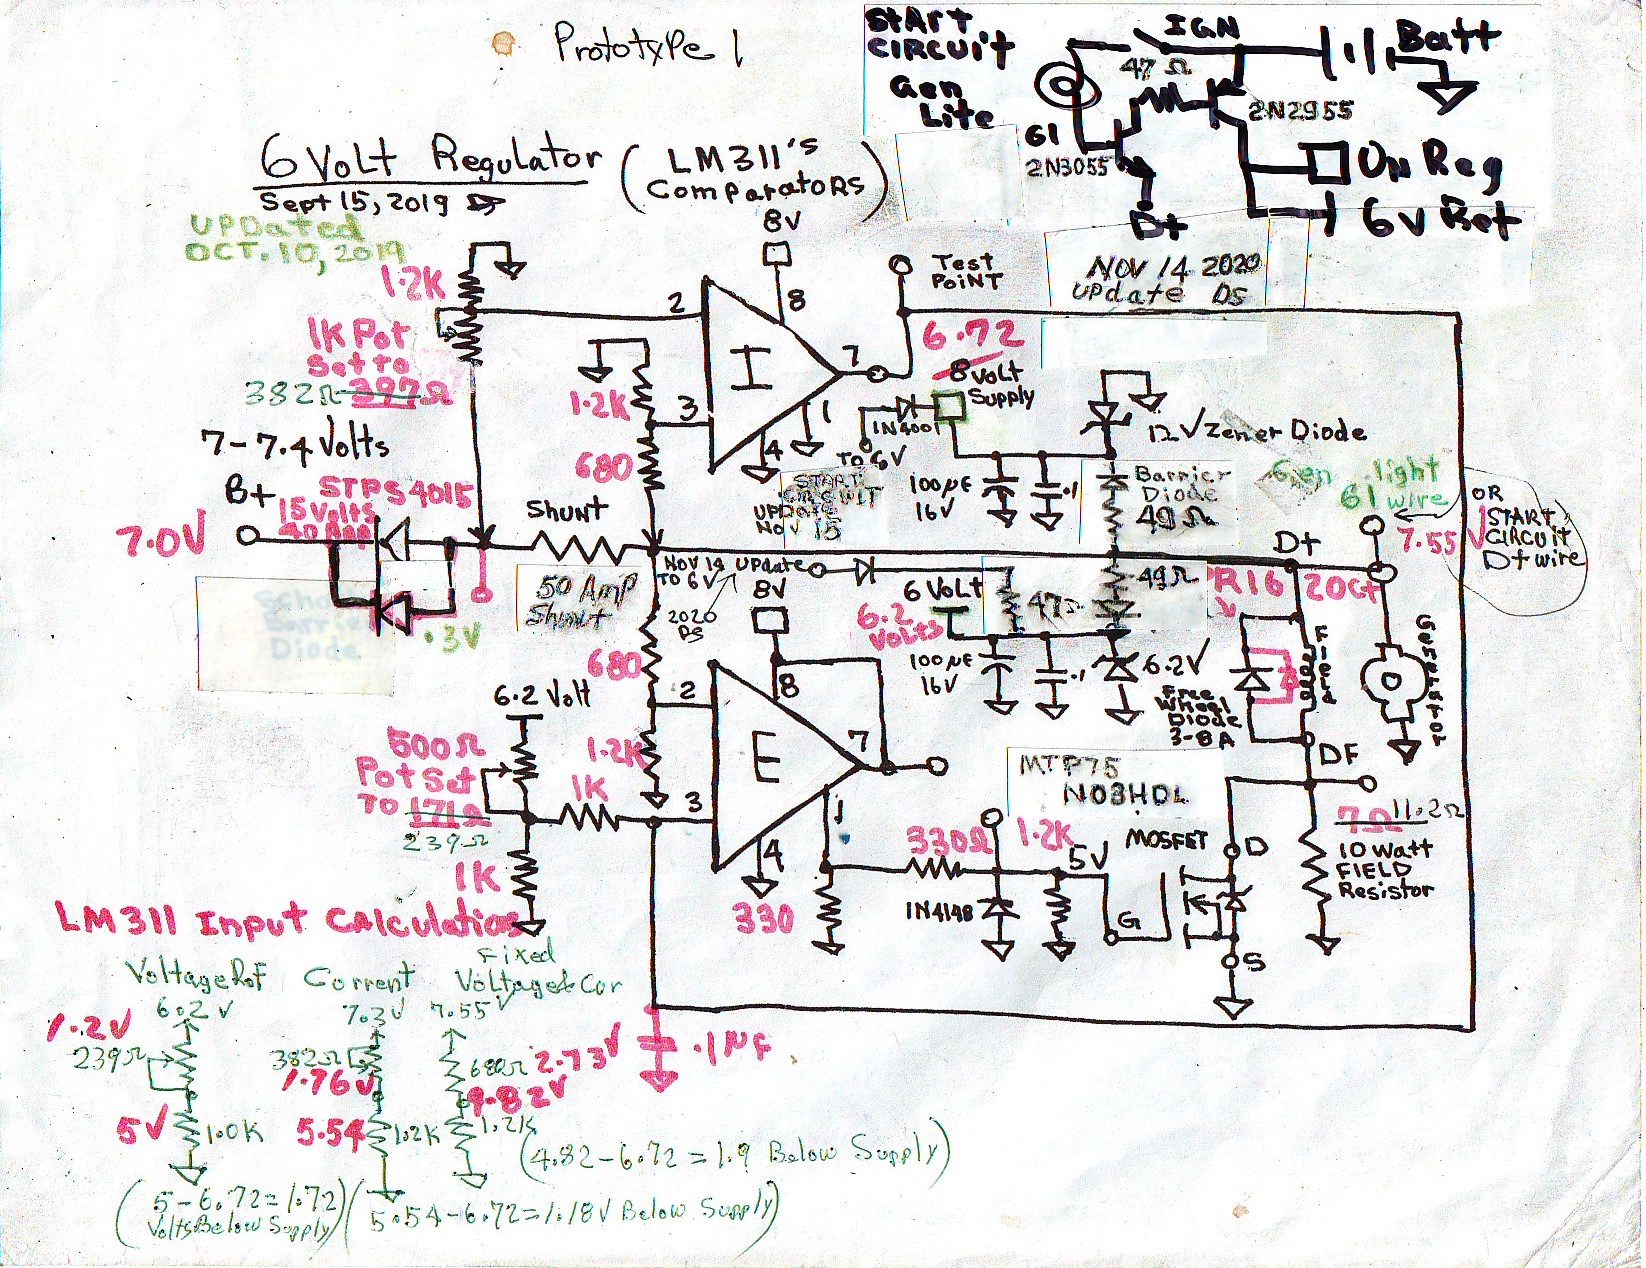 Prototype 1
START
CIRCUIT
Gen
Lite
IGN
Batt
47 Ω
2N2955
61
2N3055
On Reg
D+
6V Ret
6 Volt Regulator
(LM311's
Comparators)
Sept 15, 2019
UPDated
OCT. 10, 2019
NOV 14 2020
UPDate DS
8V
1.2K
2
8
Test
PoiNT
1K Pot
Set to
382Ω 397Ω
I
7
6.72
8 Volt
Supply
1.2K
3
1
4
1N4001
To 6V
12V Zener Diode
7-7.4 Volts
680
START
UPDate
Nov 15
100µF
16V
.1
Barrier
Diode
49Ω
Gen light
61 wire
OR
START
CIRCUIT
D+ wire
B+
STPS4015
15 Volts
40 Amp
7.0V
Shunt
7.55V
D+
50 Amp
Shunt
NOV 14 UPDate
TO 6V
2020
DS
8V
6 Volt
6.2
Volts
47Ω
49Ω
PR16
20Ct
Barrier
Diode
.3V
680
8
100µF
16V
.1
6.2V
Free
Wheel
Diode
3-8A
Field
Generator
6.2 Volt
2
500Ω
Pot Set
To 171Ω
239Ω
1.2K
1K
E
7
DF
MTP75
N03HDL
3
1
330Ω
1.2K
5V
MOSFET
D
7Ω 11.2Ω
10 Watt
FIELD
Resistor
4
1K
330
1N4148
G
S
LM311 Input Calculations
Voltage Ref
Current
Fixed
Voltage & Cur
6.2V
7.3V
7.55V
1.2V
239Ω
382Ω
1.76V
680Ω
2.73V
.1µF
4.82V
5V
1.0K
5.54
1.2K
1.2K
(4.82-6.72=1.9 Below Supply)
(5-6.72=1.72
Volts Below Supply)
(5.54-6.72=1.18V Below Supply)